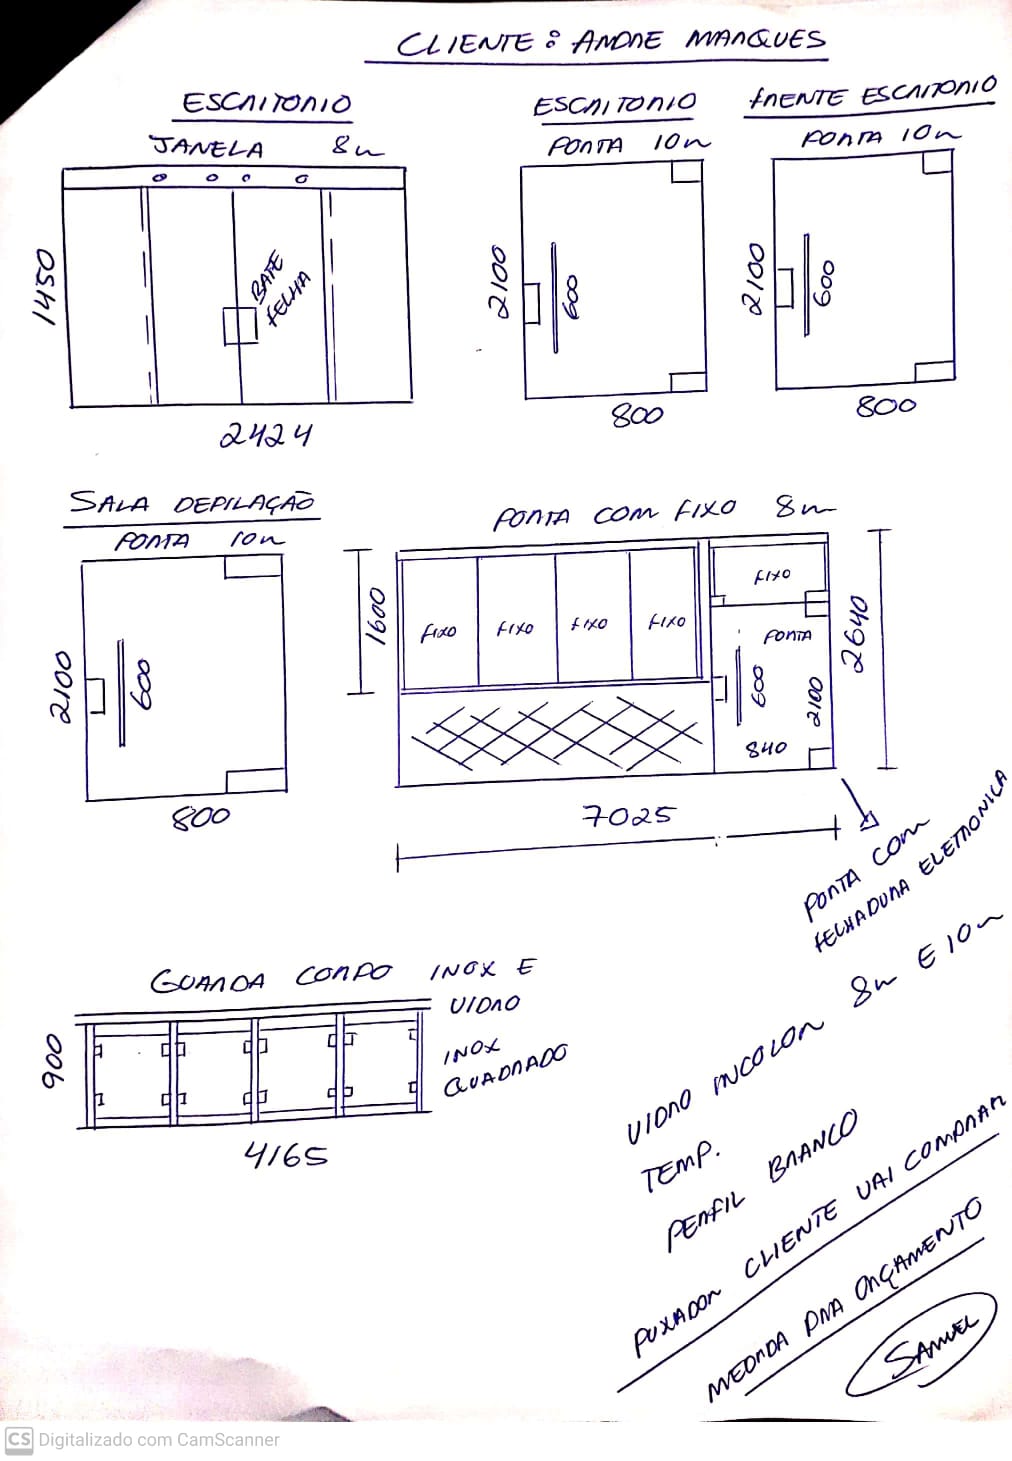 CLIENTE: ANDRE MARQUES
ESCRITORIO
JANELA 8m
1450
BATE
FECHA
2424
ESCRITORIO
PORTA 10m
2100
600
800
FRENTE ESCRITORIO
PORTA 10m
2100
600
800
SALA DEPILAÇÃO
PORTA 10m
2100
600
800
PORTA COM FIXO 8m
1600
FIXO
FIXO
FIXO
FIXO
FIXO
PORTA
600
2100
840
2640
7025
PORTA COM
FECHADURA ELETRONICA
GUARDA CORPO INOX E
VIDRO
INOX
QUADRADO
900
4165
8m E 10m
VIDRO INCOLOR
TEMP.
PERFIL BRANCO
PUXADOR CLIENTE VAI COMPRAR
MEDIDA PRA ORÇAMENTO
SAMUEL
CS Digitalizado com CamScanner